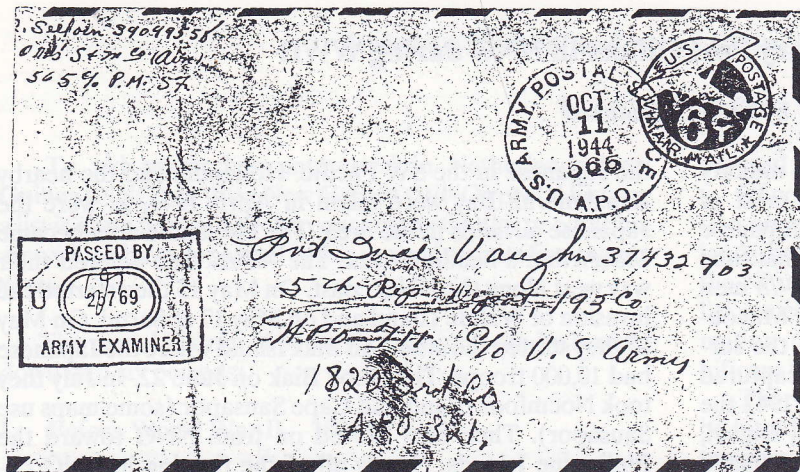 39099558
565 c/o P.M. S.F.
U.S. ARMY POSTAL SERVICE A.P.O.
OCT
11
1944
565
U.S. POSTAGE
6¢
VIA AIR MAIL
PASSED BY
U 28769
ARMY EXAMINER
Pvt Vaughn 37432903
5th Rep. Depot, 195 Co
A.P.O. 711 c/o U.S Army.
1820 Ord Co
A.P.O. 321.